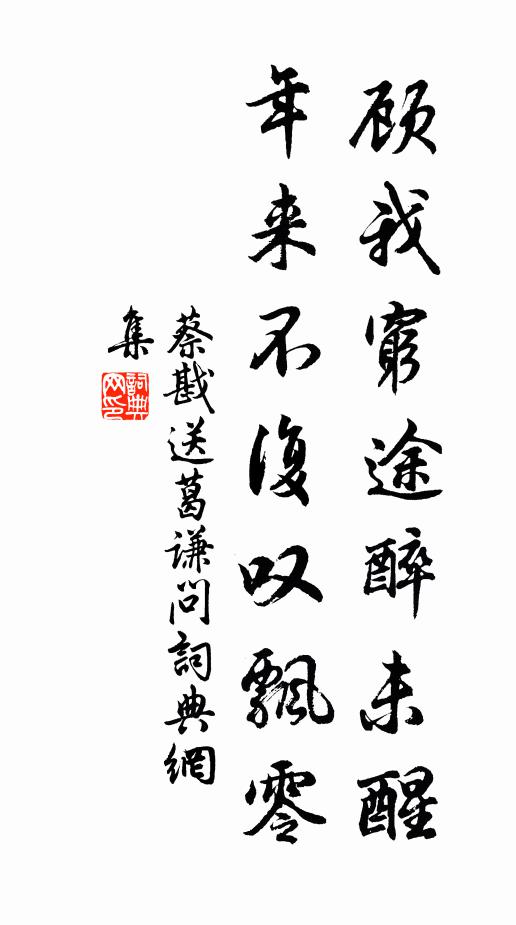 顾我穷途醉未醒
年来不复叹飘零
蔡戡送葛谦问詞典網
集
詞典网印